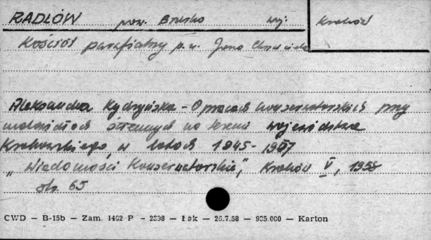 RADŁÓW pow. Brzesko woj. Kraków
Kościół parafialny p.w. Jana Chrzciciela
Aleksandra Kydryńska - O pracach konserwatorskich przy
malowidłach ściennych na terenie województwa
Krakowskiego w latach 1945-1957
"Wiadomości Konserwatorskie", Kraków V, 1958
str. 65
CWD — B-15b — Zam. 1462 P - 2238 — Łok — 26.7.58 — 935.000 — Karton